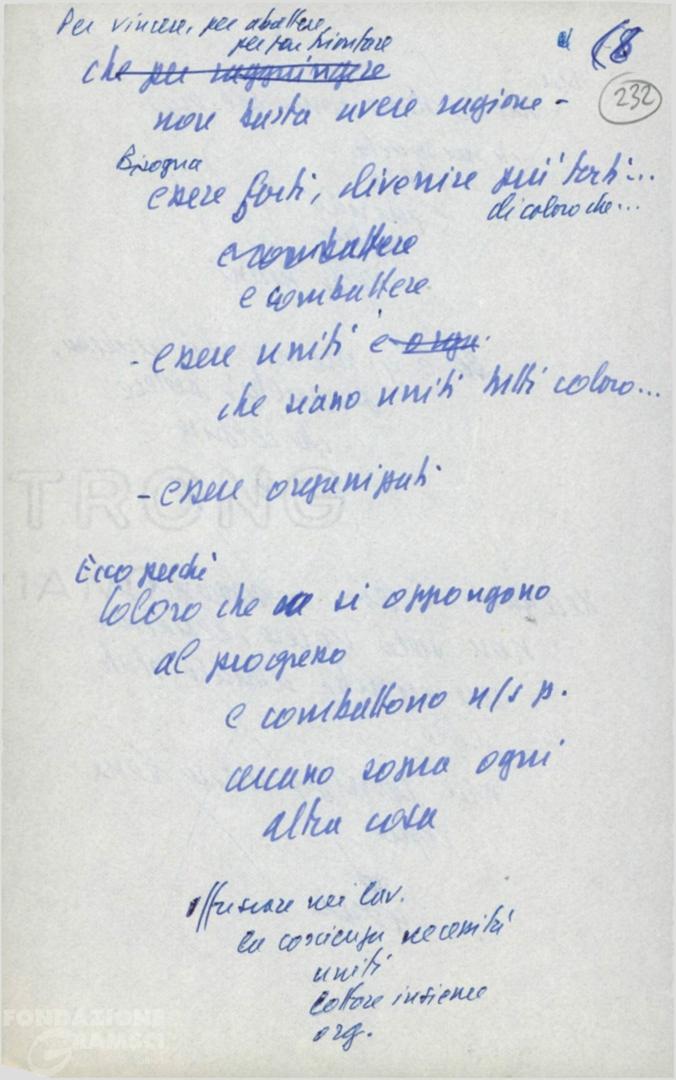 Per vincere, per abattere,
per far trionfare
(8
232
che per raggiungere
non basta avere ragione -
Bisogna
essere forti, divenire più forti...
di coloro che...
e combattere
e combattere
- essere uniti e orga.
che siano uniti tutti coloro...
- essere organizzati
Ecco perché
Coloro che si oppongono
al progresso
e combattono n/s p.
cercano sopra ogni
altra cosa
offuscare nei lav.
la coscienza necessità
uniti
lottare insieme
org.
FONDAZIONE
GRAMSCI